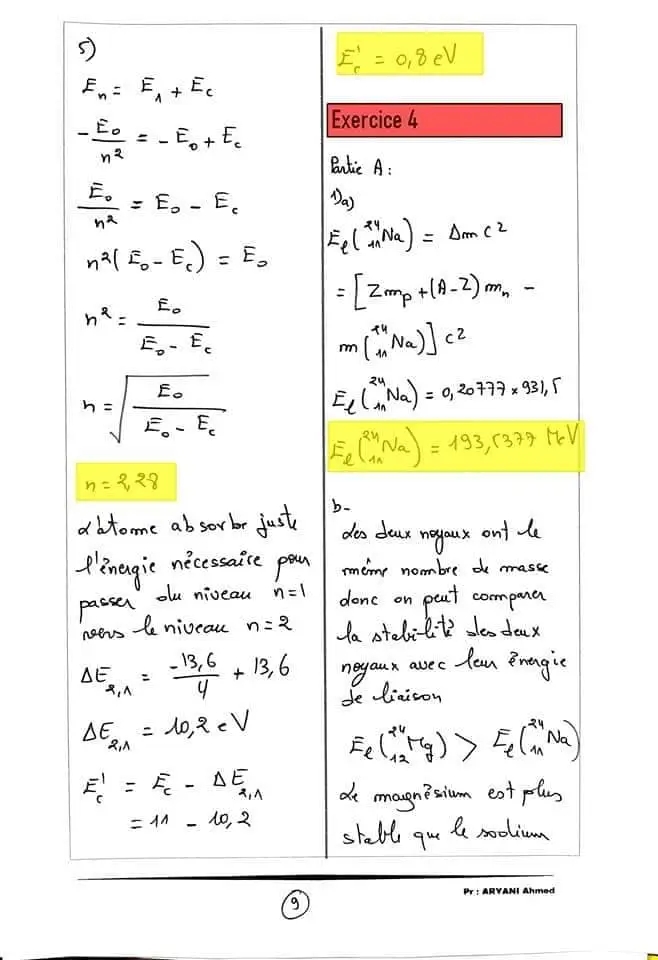 5)
Eₙ = E₁ + E_c
-E₀/n² = -E₀ + E_c
E₀/n² = E₀ - E_c
n²(E₀ - E_c) = E₀
n² = E₀/(E₀ - E_c)
n = √(E₀/(E₀ - E_c))
n = 2,28
L'atome absorbe juste
l'énergie nécessaire pour
passer du niveau n=1
vers le niveau n=2
ΔE₂,₁ = -13,6/4 + 13,6
ΔE₂,₁ = 10,2 eV
E'_c = E_c - ΔE₂,₁
= 11 - 10,2
E'_c = 0,8 eV
Exercice 4
Partie A :
1)a)
E_ℓ(²⁴₁₁Na) = Δm c²
= [Zm_p + (A-Z)m_n -
m(²⁴₁₁Na)] c²
E_ℓ(²⁴₁₁Na) = 0,20777 × 931,5
E_ℓ(²⁴₁₁Na) = 193,5377 MeV
b-
Les deux noyaux ont le
même nombre de masse
donc on peut comparer
la stabilité des deux
noyaux avec leur énergie
de liaison
E_ℓ(²⁴₁₂Mg) > E_ℓ(²⁴₁₁Na)
Le magnésium est plus
stable que le sodium
Pr : ARYANI Ahmed
9